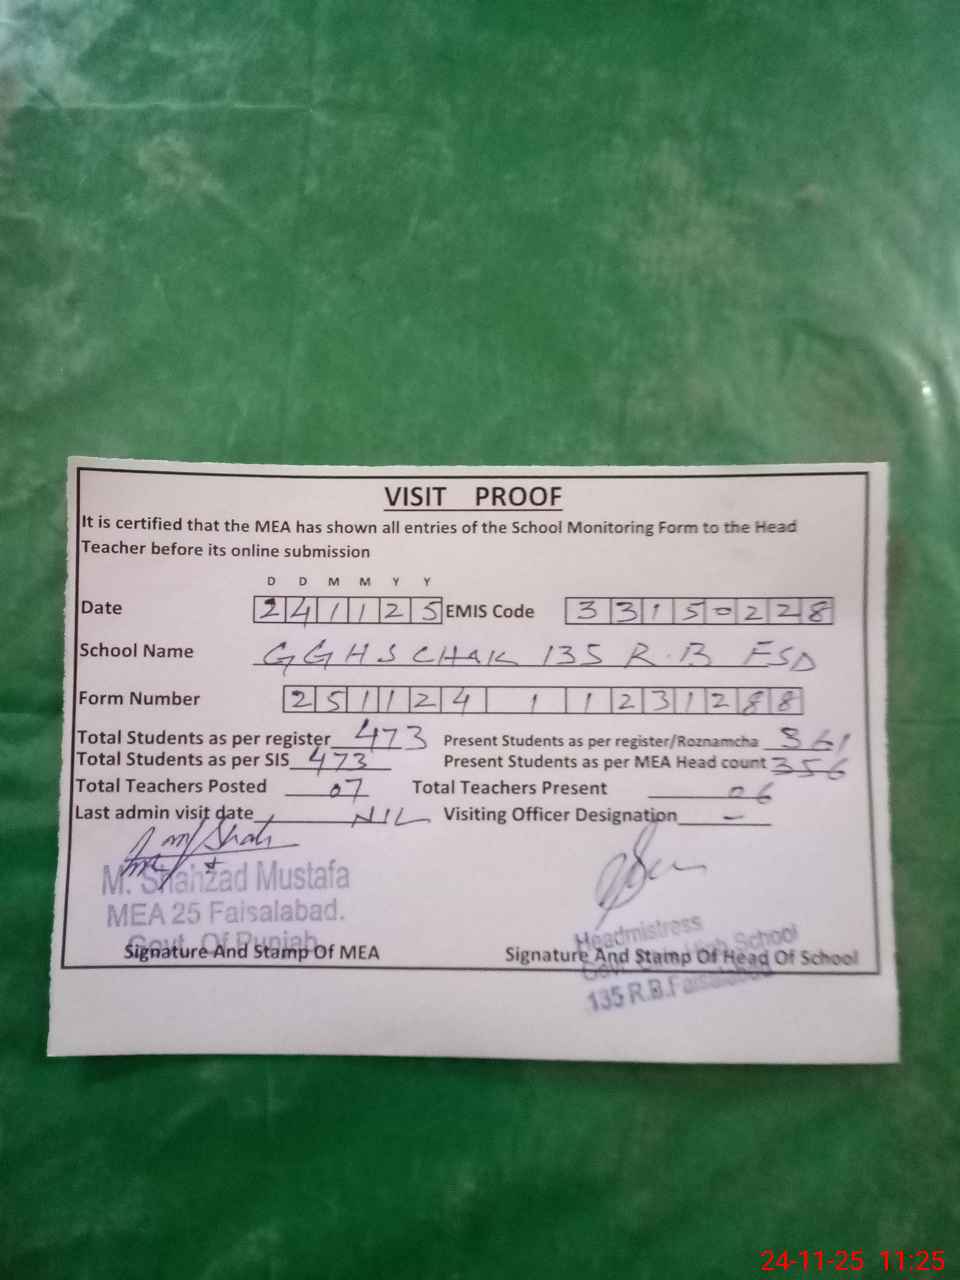 VISIT PROOF
It is certified that the MEA has shown all entries of the School Monitoring Form to the Head
Teacher before its online submission
D D M M Y Y
Date 241125 EMIS Code 33150228
School Name GGHS CHAK 135 R.B FSD
Form Number 25112411231288
Total Students as per register 473 Present Students as per register/Roznamcha 361
Total Students as per SIS 473 Present Students as per MEA Head count 356
Total Teachers Posted 07 Total Teachers Present 06
Last admin visit date NIL Visiting Officer Designation -
M. Shahzad Mustafa
MEA 25 Faisalabad.
Govt. Of Punjab
Signature And Stamp Of MEA
Headmistress
Govt. High School
Signature And Stamp Of Head Of School
135 R.B.Faisalabad
24-11-25 11:25